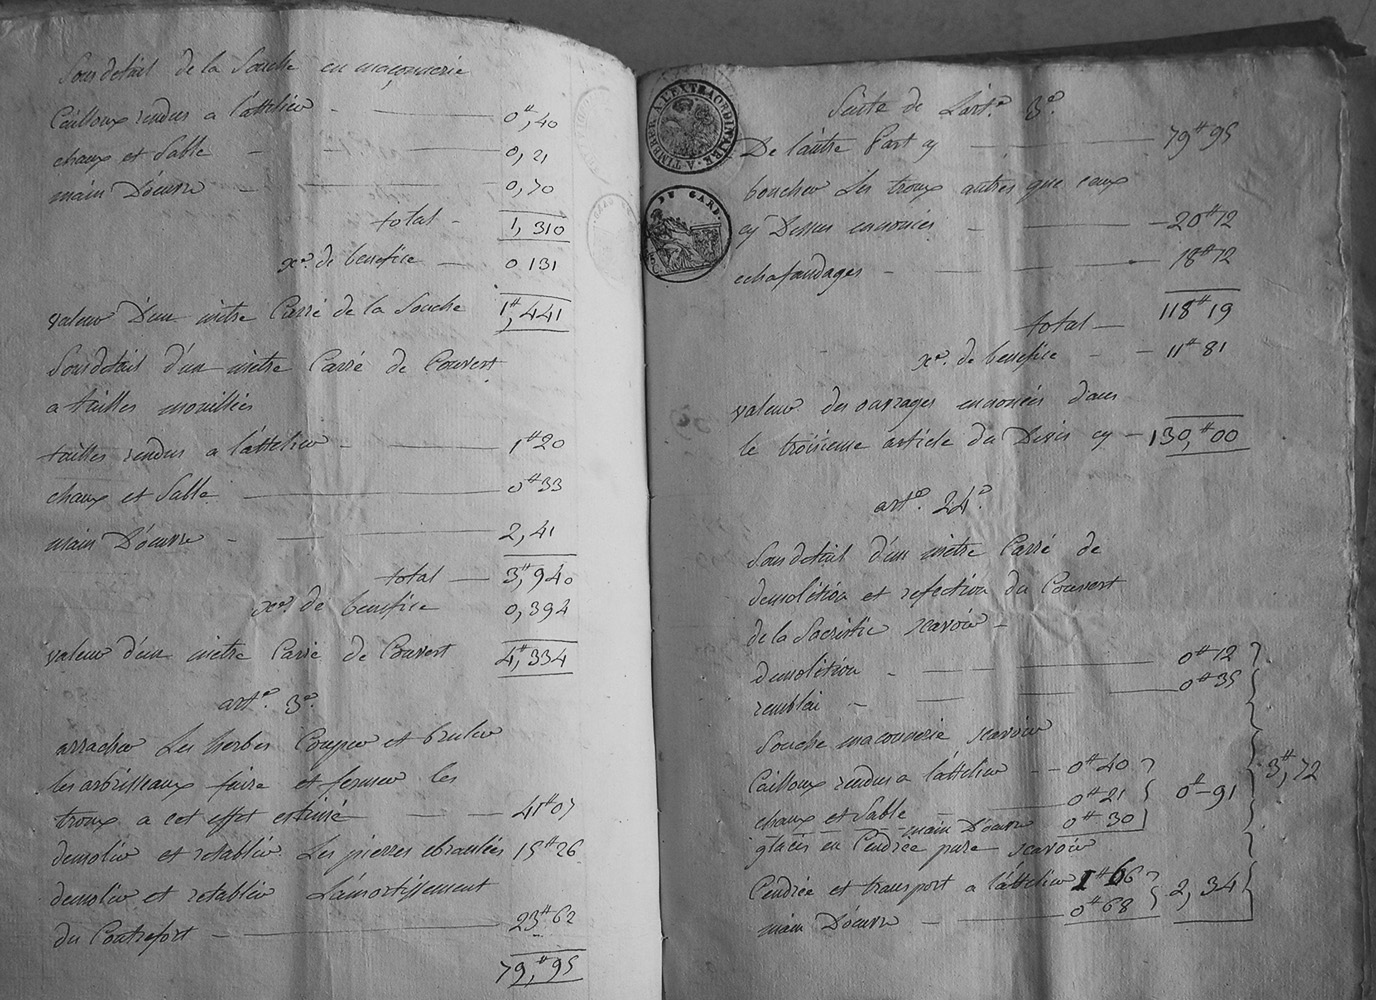 Sousdetail de la Souche en maçonnerie
Cailloux rendus a l'attelier — 0#,40
chaux et Sable — 0, 21
main D'œuvre — 0,70
total — 1, 310
xe. de benefice — 0 131
valeur D'un mètre Carré de la Souche 1#,441
Sousdetail d'un mètre Carré de Couvert
a tuilles mouillées
tuilles rendus a l'attelier — 1#20
chaux et Sable — 0#33
main D'œuvre — 2,41
total — 3#,940
xe. de benefice 0,394
valeur d'un mètre Carré de Couvert 4#,334
arte. 3e.
arracher Les herbes Couper et bruler
les arbrisseaux faire et fermer les
troux a cet effet estimé — 41#07
demolir et retablir Les pierres ebranlées 15#26
demolir et retablir L'amortissement
du Contrefort — 23#62
79,#95
A L'EXTRAORDINAIRE
A TIMBRER
DU GARD.
Suite de L'arte. 3e.
De l'autre Part cy — 79#95
boucher Les troux autres que ceux
cy Dessus enoncés — 20#12
echafaudages — 18#12
total — 118#19
xe. de benefice — 11#81
valeur des ouvrages enoncés dans
le troisieme article du Devis cy — 130,#00
arte. 24e.
Sousdetail d'un mètre Carré de
demolition et refection du Couvert
de la Sacristie scavoir —
demolition — 0#12
remblai — 0#35
Souche maconnerie scavoir
Cailloux rendus a l'attelier — 0#40
chaux et Sable — 0#21 0#-91 3#,72
main D'œuvre 0#30
glacis en Cendrée pure scavoir
Cendrée et transport a l'attelier 1#66 2,34
main D'œuvre — 0#68